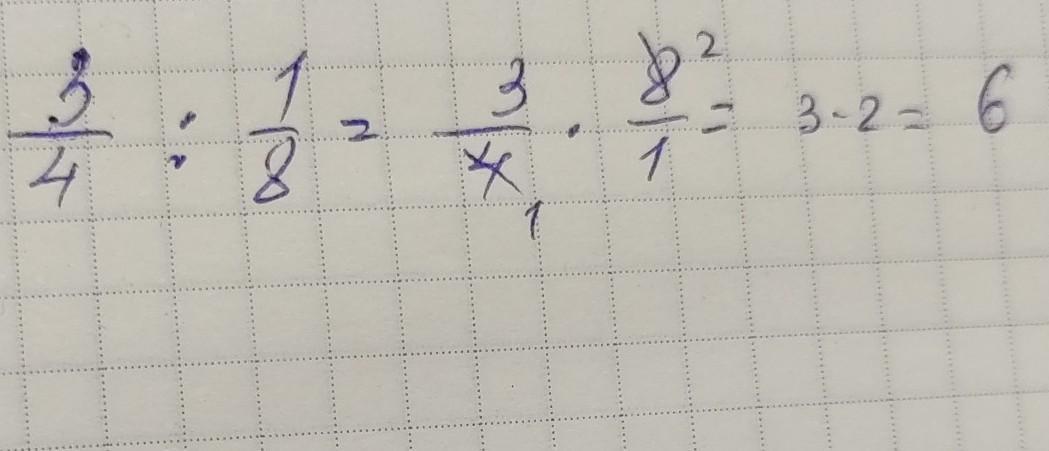 3/4 : 1/8 = 3/4 1 · 8 2/1 = 3 · 2 = 6